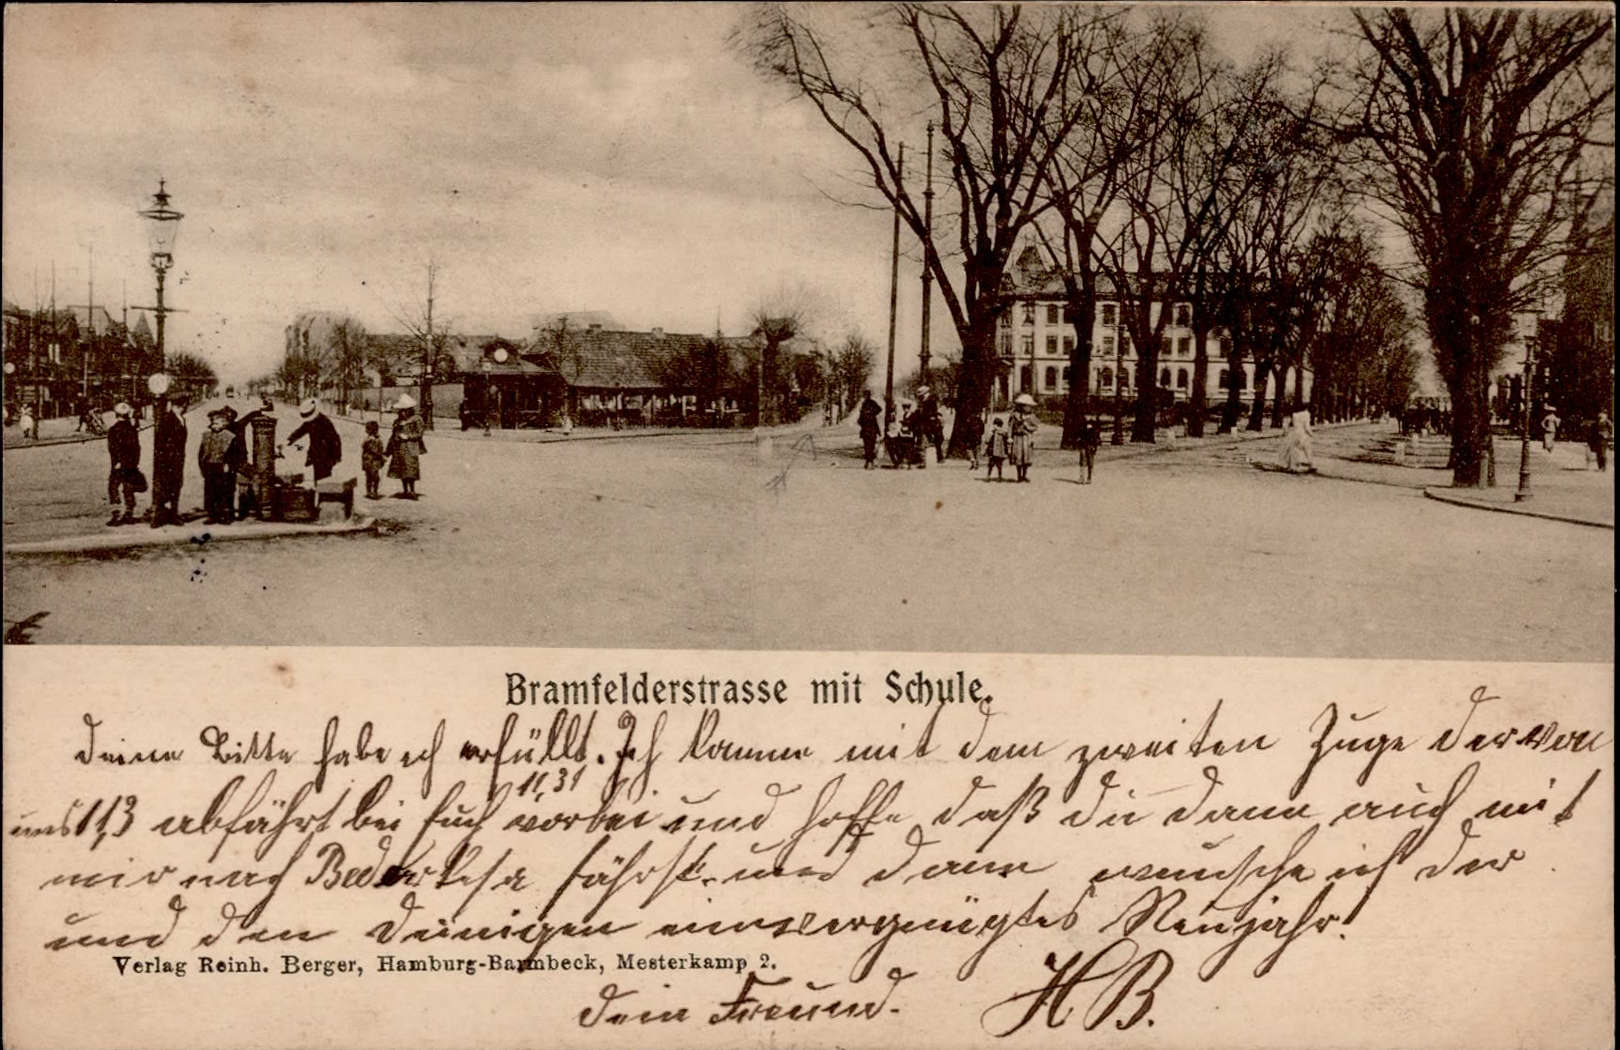 Bramfelderstrasse mit Schule.
deine Bitte habe ich erfüllt. Ich komme mit dem zweiten Zuge der von
11,31
uns 11,3 abfährt bei Euch vorbei und hoffe daß du dann auch mit
mir nach Bederkesa fährst. und dann wünsche ich der
und den deinigen ein vergnügtes Neujahr!
Verlag Reinh. Berger, Hamburg-Barmbeck, Mesterkamp 2.
dein Freund. H B.